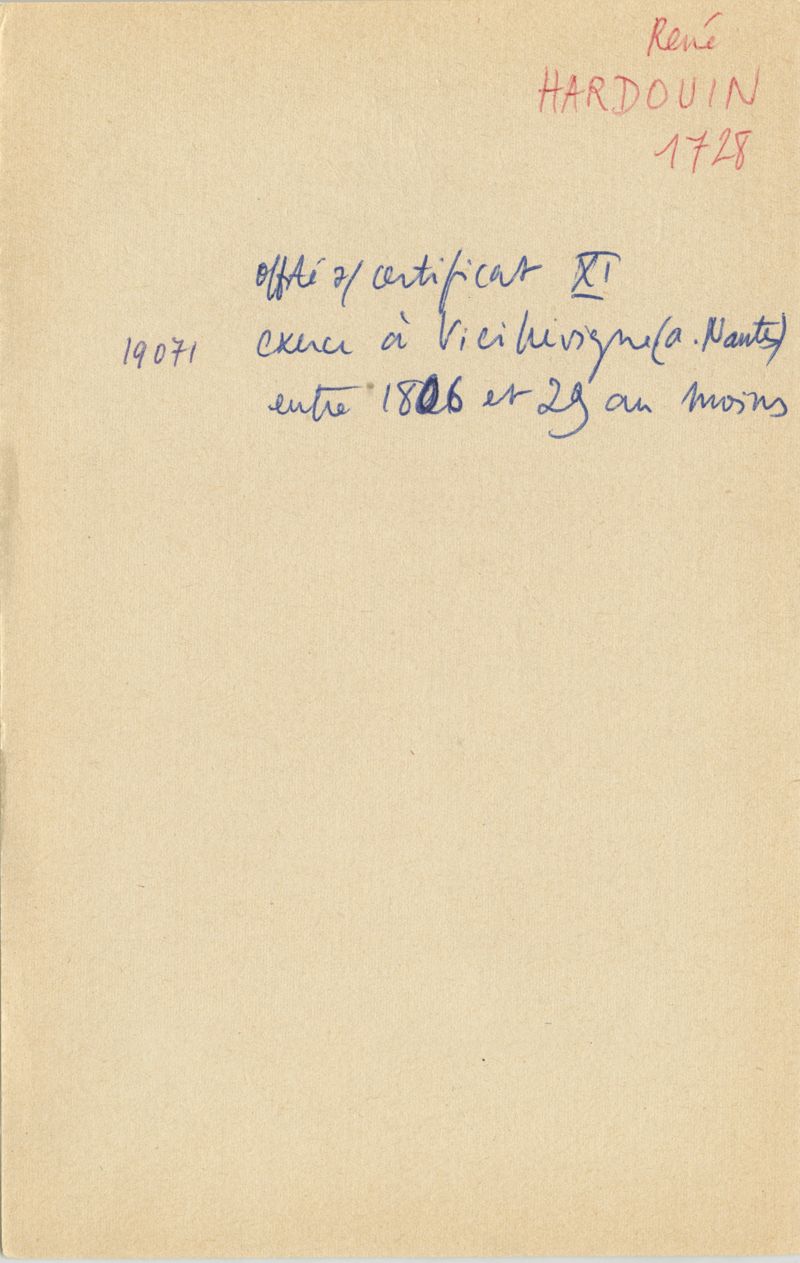 René
HARDOUIN
1728
certificat XI
19071 exerce à Vieillevigne (a. Nantes)
entre 1806 et 29 au moins